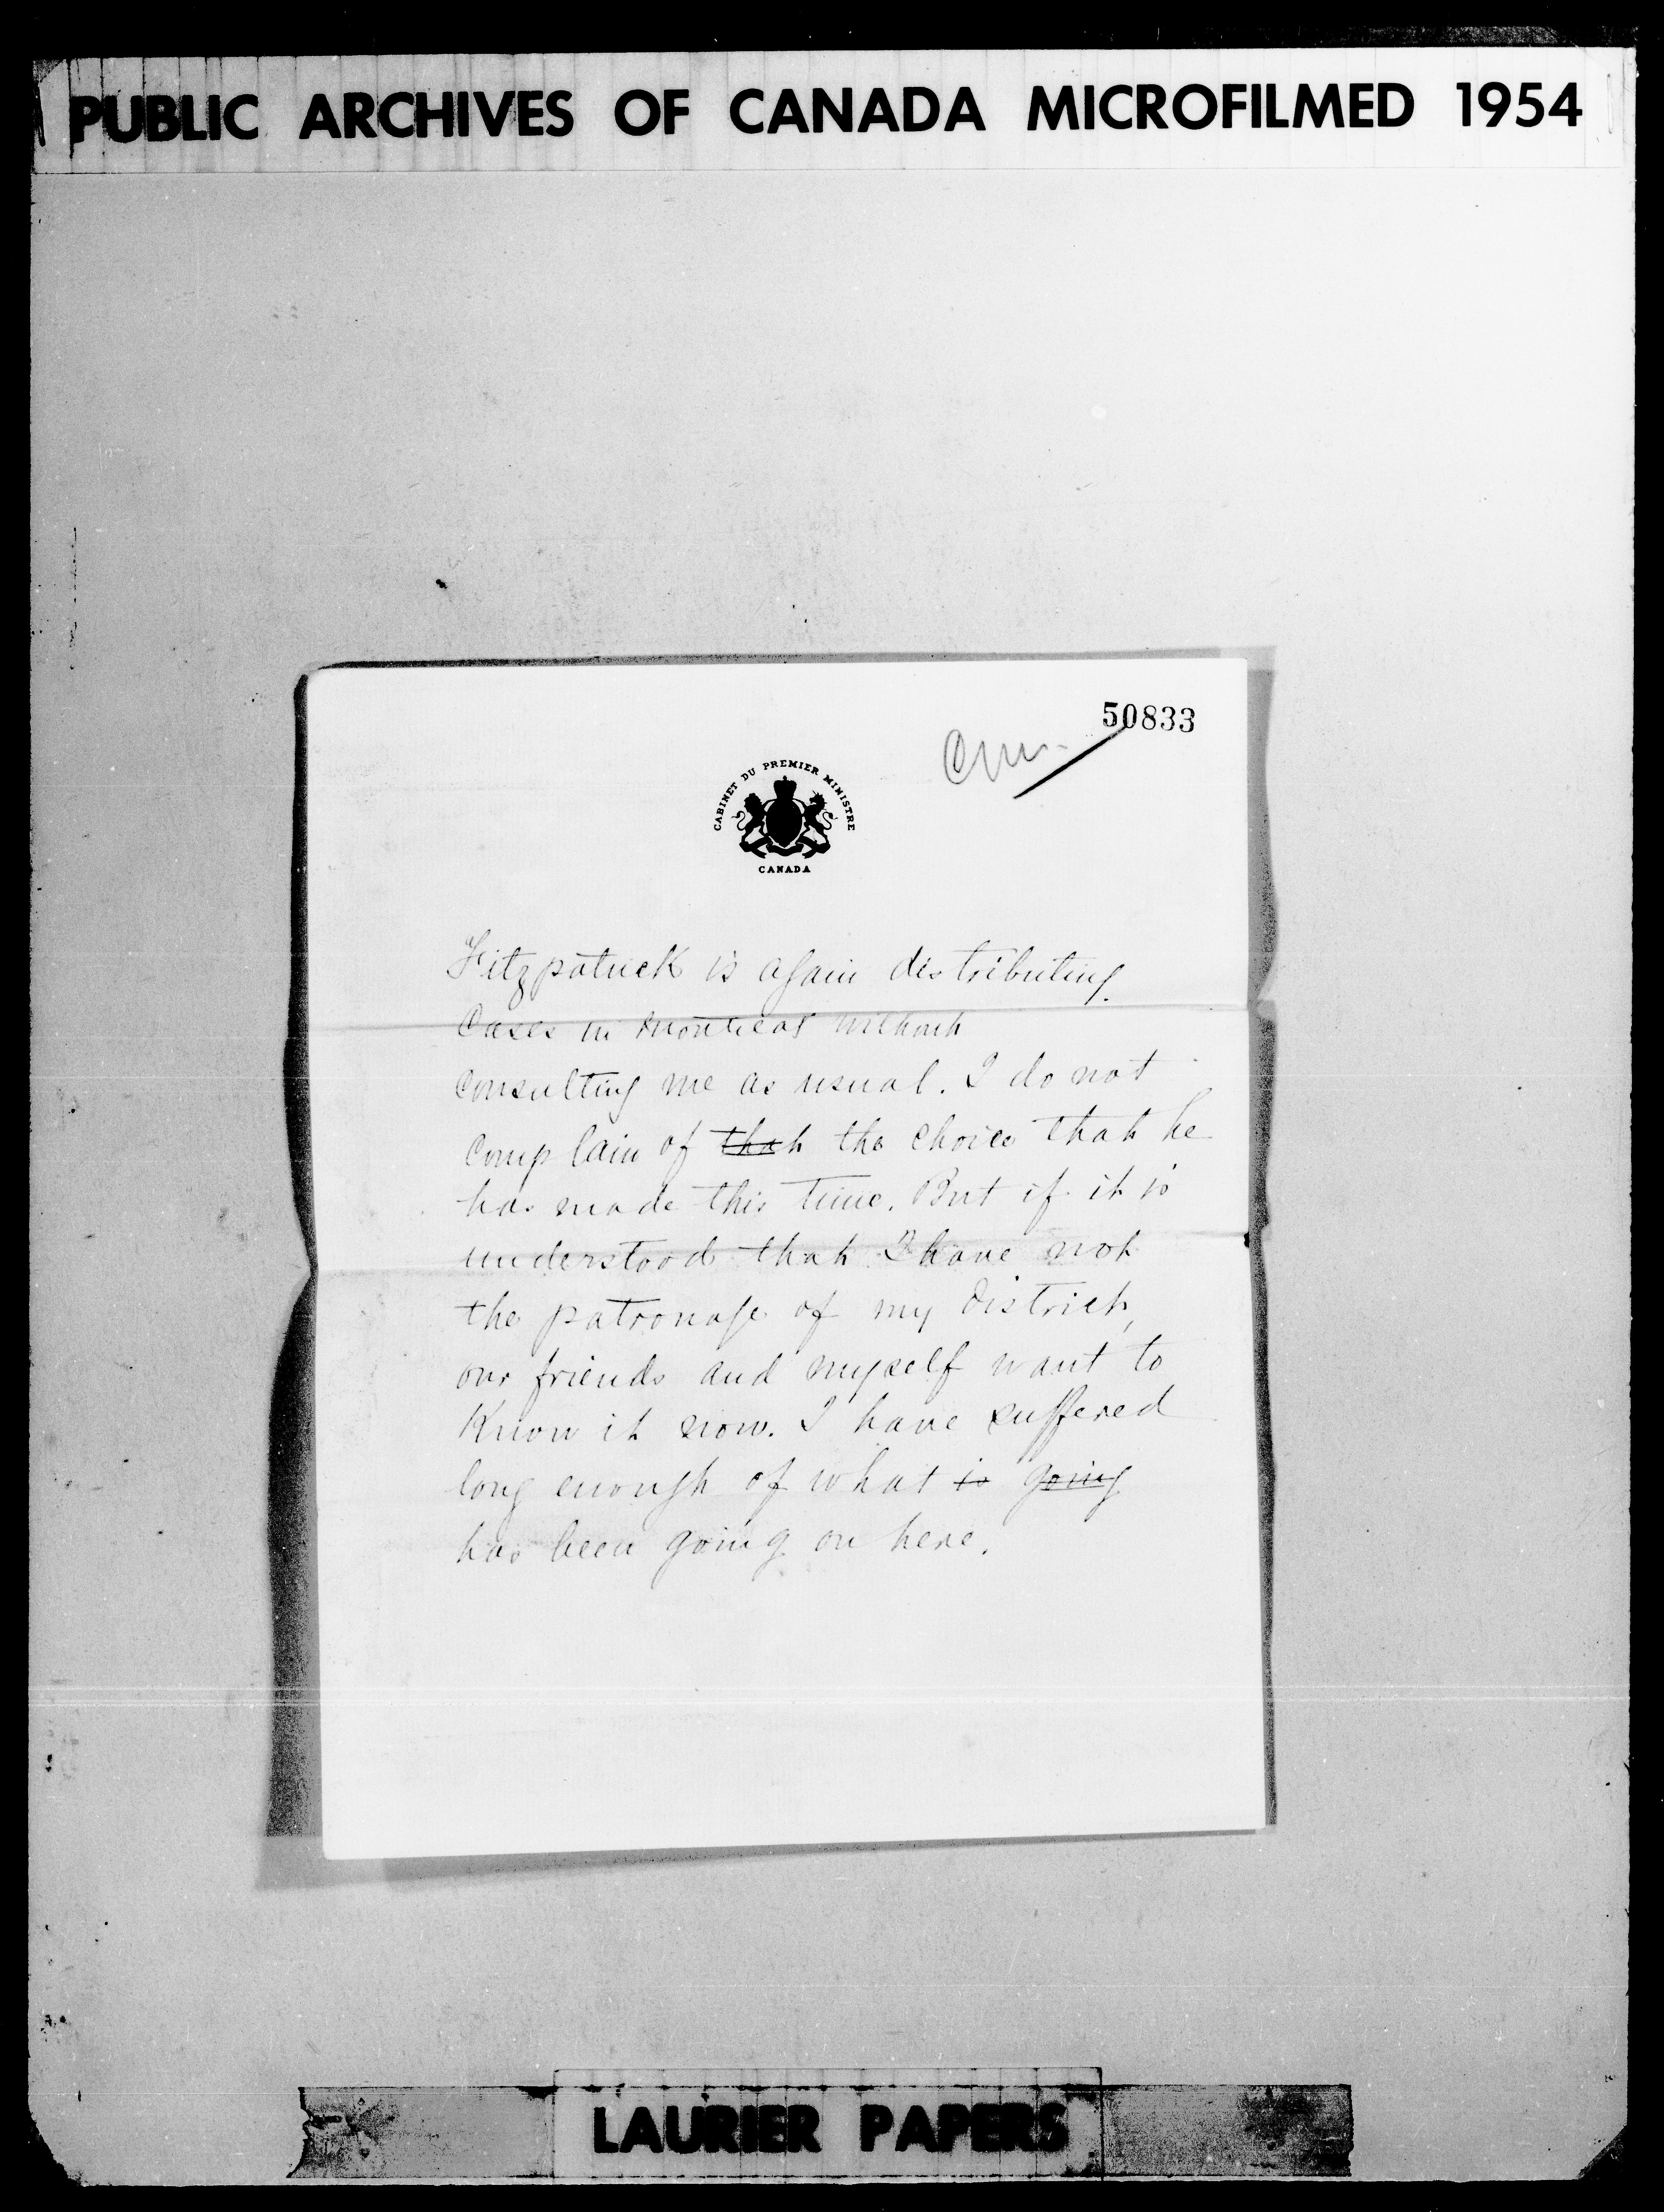 PUBLIC ARCHIVES OF CANADA MICROFILMED 1954
50833
CABINET DU PREMIER MINISTRE
CANADA
Fitzpatrick is again distributing
cases in Montreal without
consulting me as usual. I do not
complain of that the choice that he
has made this time. But if it is
understood that I have not
the patronage of my district,
our friends and myself want to
know it now. I have suffered
long enough of what is going
has been going on here.
LAURIER PAPERS